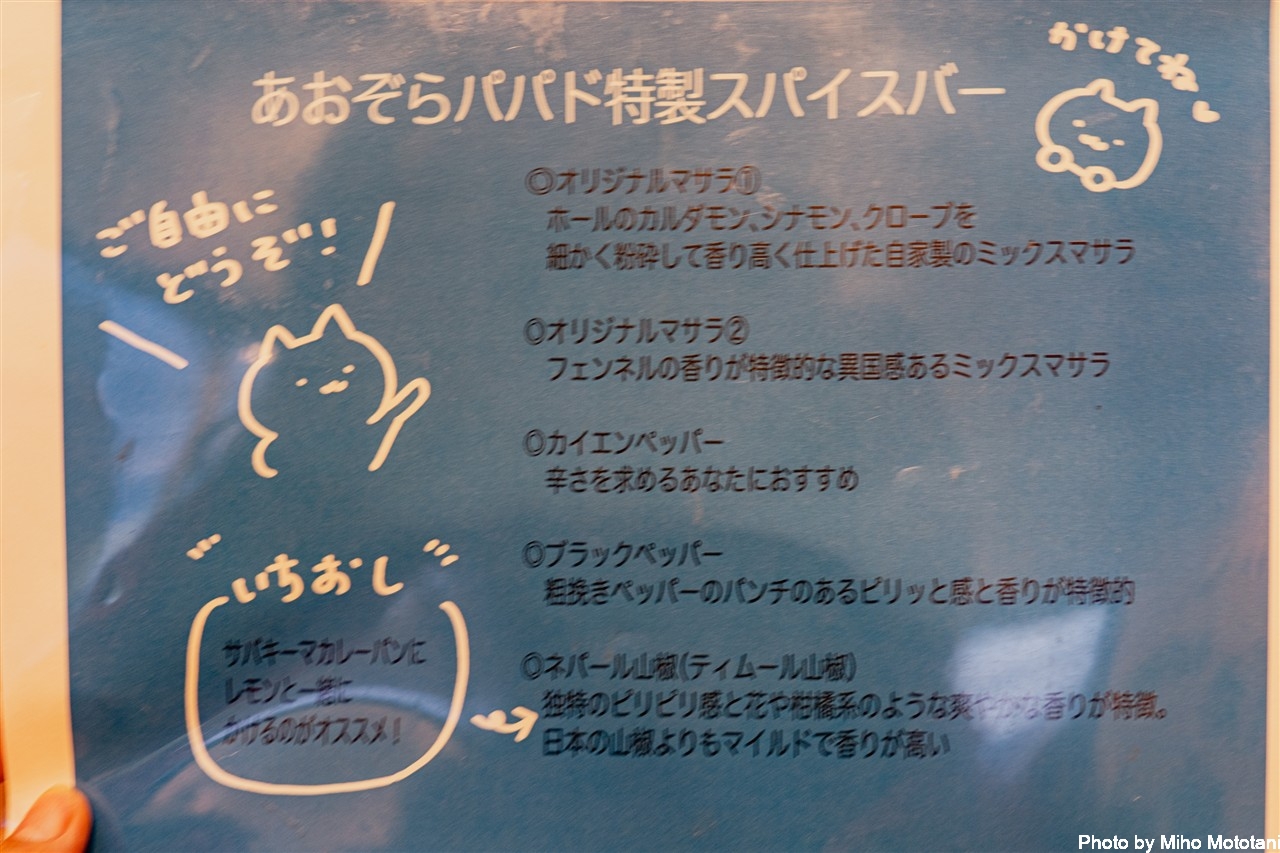 あおぞらパパド特製スパイスバー
かけてね
ご自由に
どうぞ!
◎オリジナルマサラ①
ホールのカルダモン、シナモン、クローブを
細かく粉砕して香り高く仕上げた自家製のミックスマサラ
◎オリジナルマサラ②
フェンネルの香りが特徴的な異国感あるミックスマサラ
◎カイエンペッパー
辛さを求めるあなたにおすすめ
◎ブラックペッパー
粗挽きペッパーのパンチのあるピリッと感と香りが特徴的
いちおし
サバキーマカレーパンに
レモンと一緒に
かけるのがオススメ!
◎ネパール山椒(ティムール山椒)
独特のピリピリ感と花や柑橘系のような爽やかな香りが特徴。
日本の山椒よりもマイルドで香りが高い
Photo by Miho Mototani